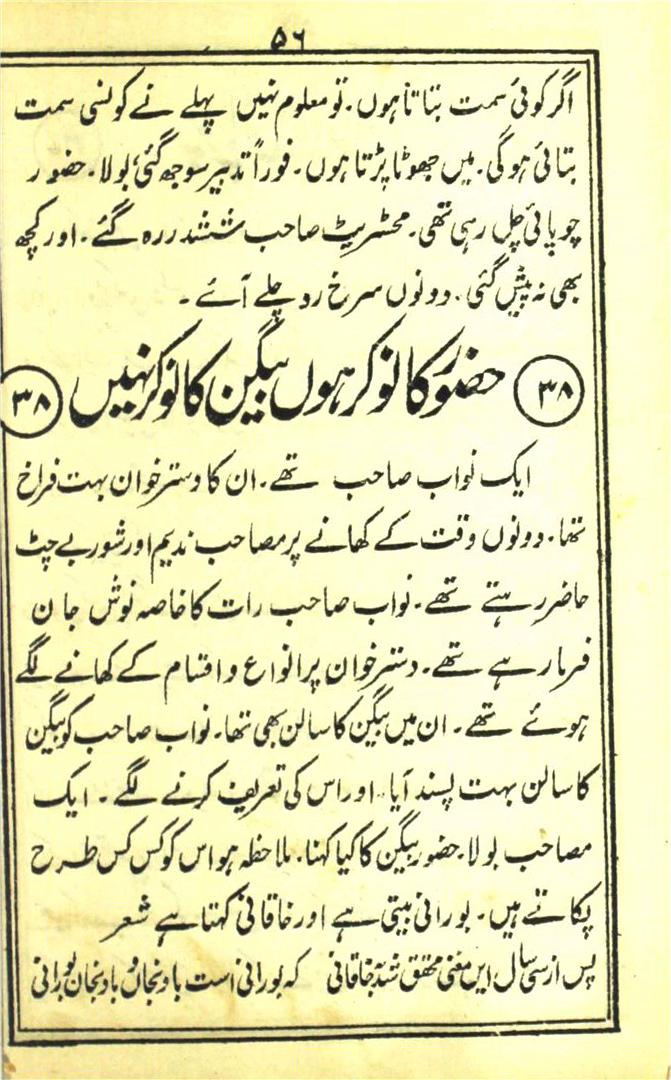 ۵۶
اگر کوئی سمت بتاتا ہوں۔ تو معلوم نہیں پہلے نے کونسی سمت
بتائی ہوگی۔ میں جھوٹا پڑتا ہوں۔ فوراً تدبیر سوجھ گئی، بولا۔ حضور
چوپائی چل رہی تھی۔ مجسٹریٹ صاحب ششدر رہ گئے۔ اور کچھ
بھی نہ پیش گئی۔ دونوں سرخ رو چلے آئے۔
۳۸ حضور کا نوکر ہوں بیگن کا نوکر نہیں ۳۸
ایک نواب صاحب تھے۔ ان کا دسترخوان بہت فراخ
تھا۔ دونوں وقت کے کھانے پر مصاحب ندیم اور شوربے چٹ
حاضر رہتے تھے۔ نواب صاحب رات کا خاصہ نوش جان
فرما رہے تھے۔ دسترخوان پر انواع و اقسام کے کھانے لگے
ہوئے تھے۔ ان میں بیگن کا سالن بھی تھا۔ نواب صاحب کو بیگن
کا سالن بہت پسند آیا۔ اور اس کی تعریف کرنے لگے۔ ایک
مصاحب بولا۔ حضور بیگن کا کیا کہنا۔ ملاحظہ ہو اس کو کس کس طرح
پکاتے ہیں۔ بورانی بنتی ہے اور خاقانی کہتا ہے شعر
پس از سی سال ایں معنی محقق شد بہ خاقانی کہ بورانی است بادنجاں و بادنجان بورانی